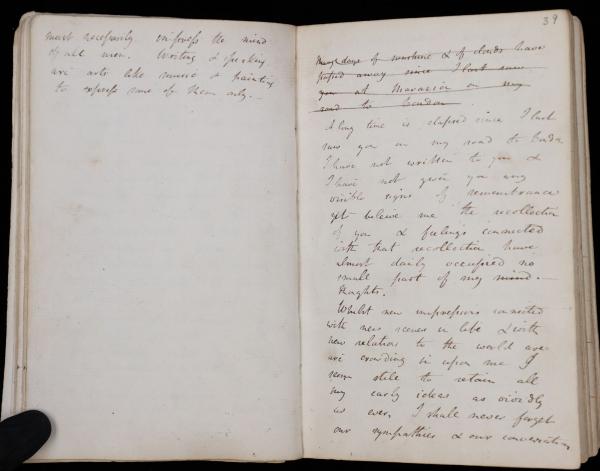 must necessarily impress the mind
of all men. Writing & speaking
are arts like music & painting
to express some of them only. –
39
Many days of sunshine & of clouds have
passed away since I last saw
you at Marazion on my
road to London
A long time is elapsed since I last
saw you on my road to London
I have not written to you &
I have not given you any
visible signs of remembrance
yet believe me the recollection
of you & feelings connected
with that recollection have
almost daily occupied no
small part of my mind. –
thoughts.
Whilst new impressions connected
with new scenes in life & with
new relations to the world are
are crowding in upon me I
seem still to retain all
my early ideas as vividly
as ever. I shall never forget
our sympathies & our conversations